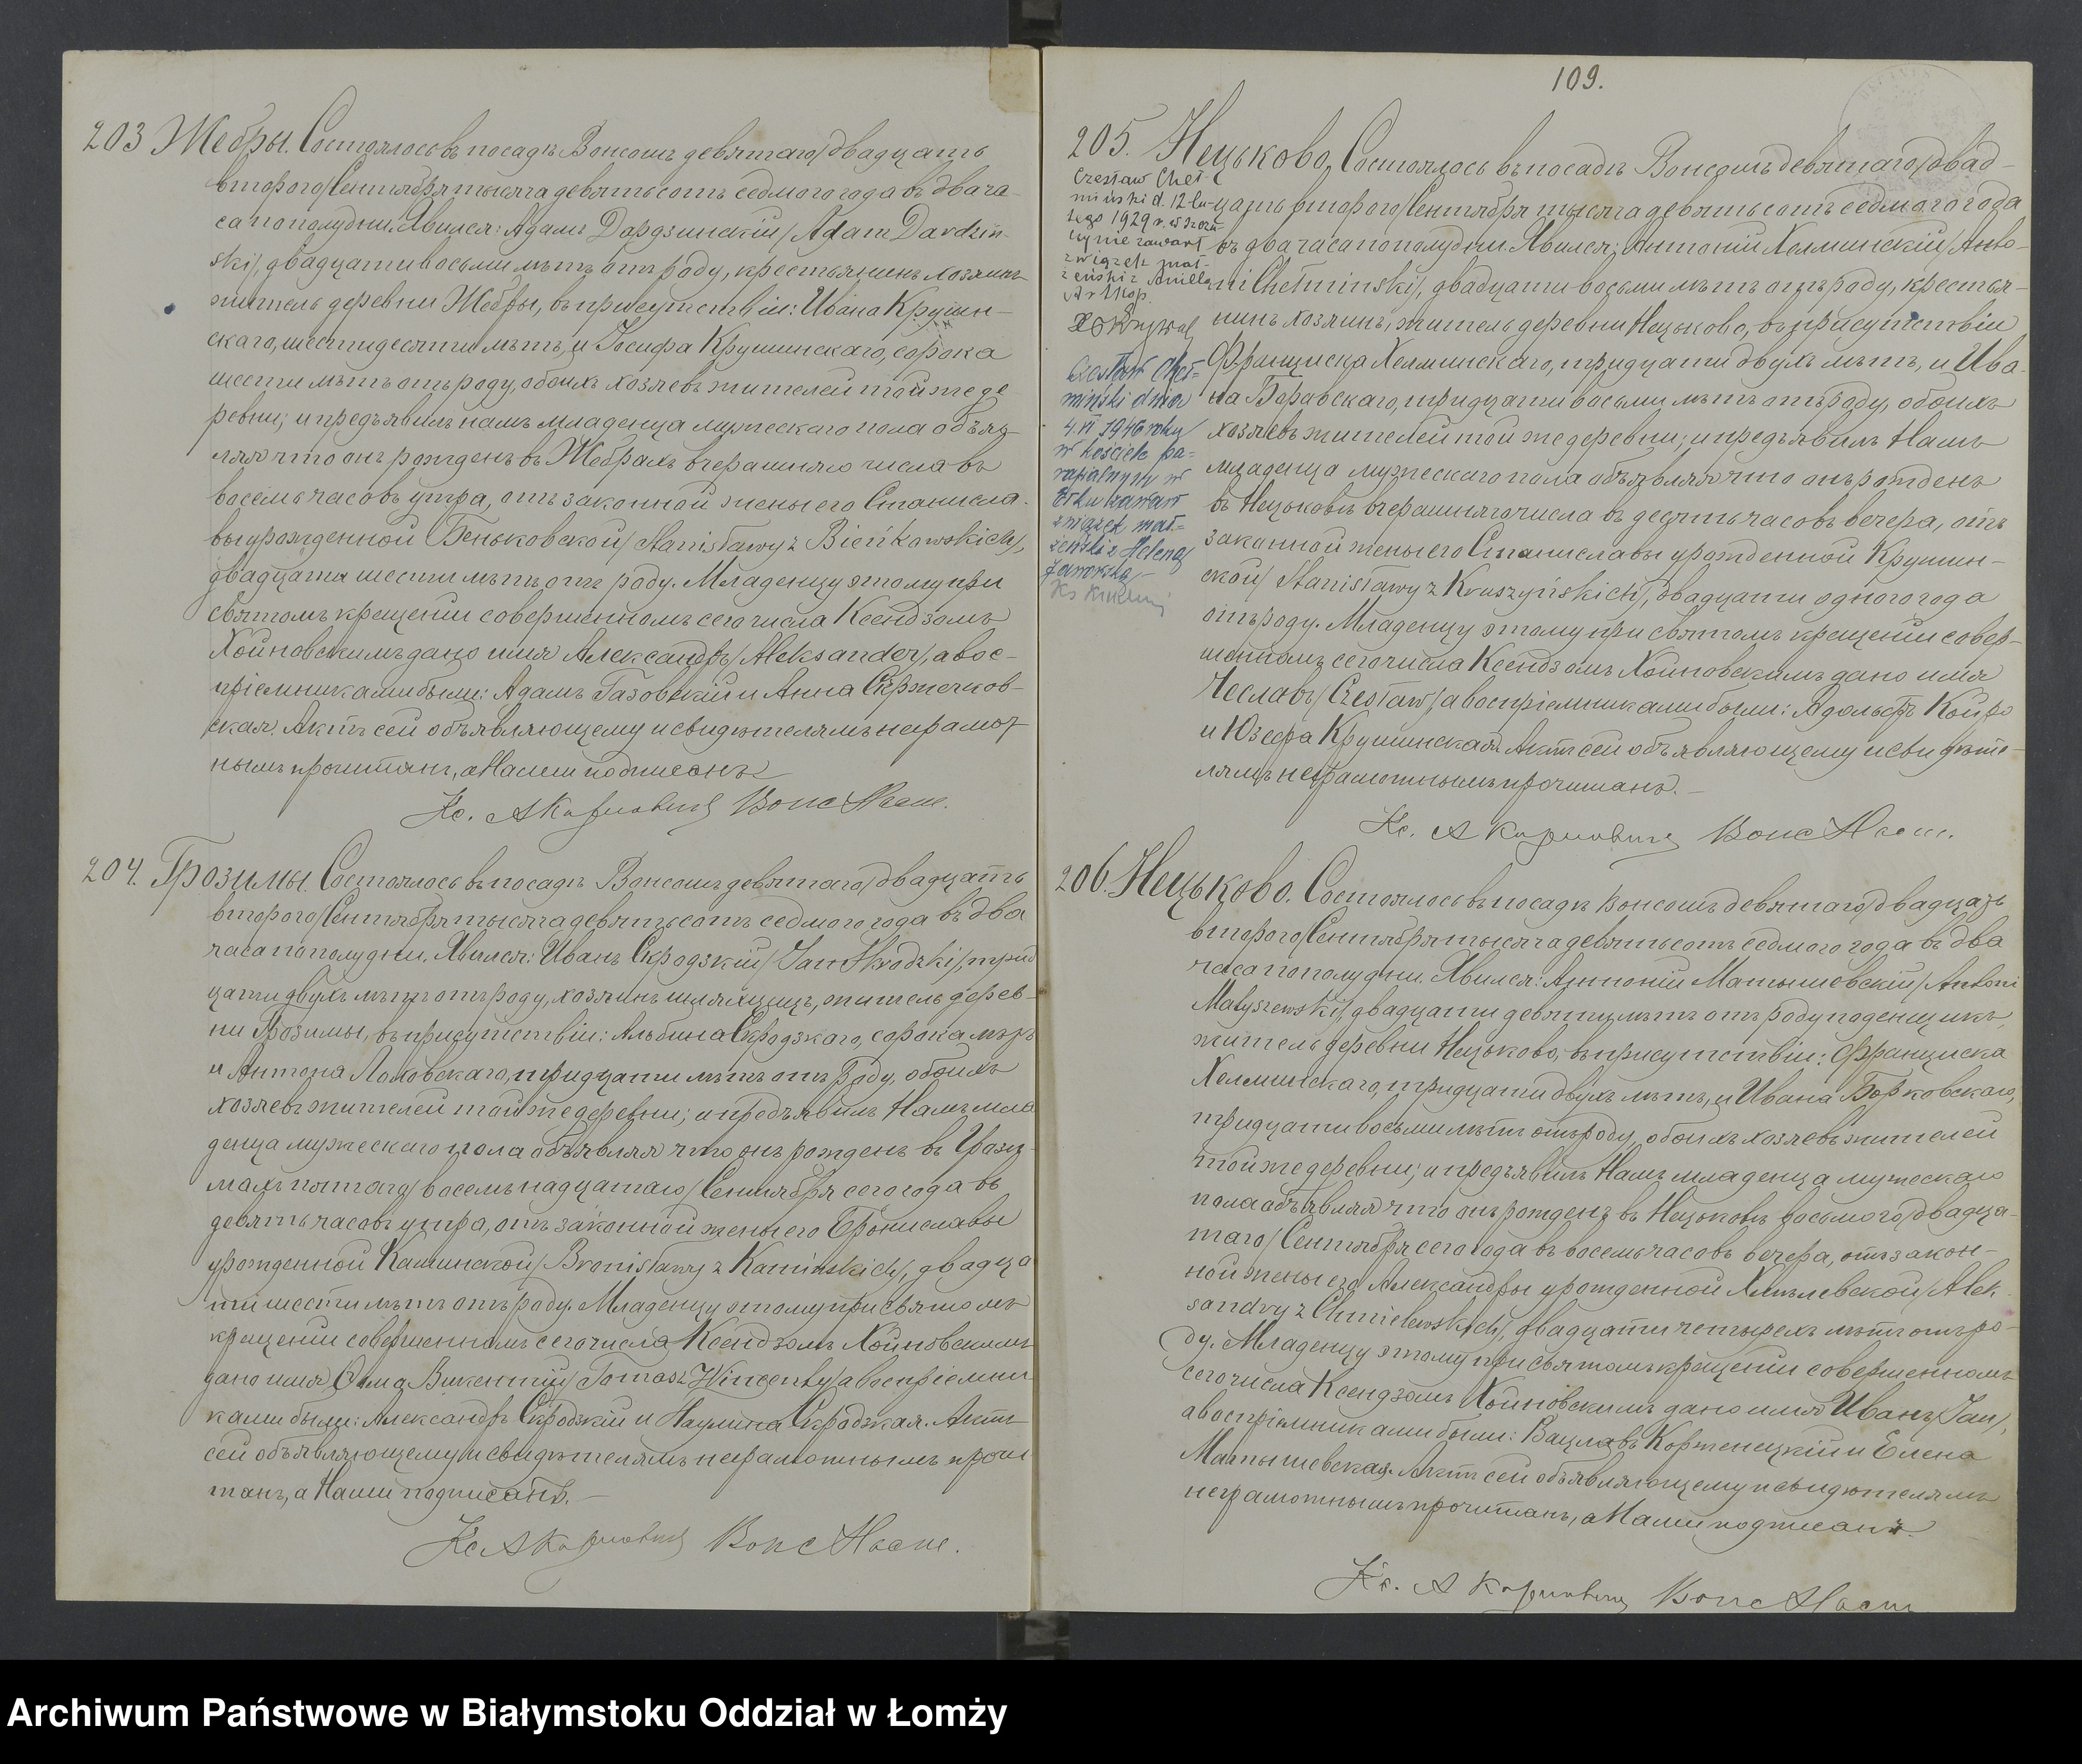 203 Жебры. Состоялось въ посадѣ Вонсошъ девятаго/двадцать
втораго/Сентября тысяча девятьсотъ седмого года въ два ча-
са пополудни. Явился: Адамъ Дардзинскій /Adam Dardziń-
ski/, двадцати восьми лѣтъ отъ роду, крестьянинъ хозяинъ
житель деревни Жебры, въ присутствіи: Ивана Крушин-
скаго, шестидесяти лѣтъ, и Іосифа Крушинскаго, сорока
шести лѣтъ отъ роду, обоихъ хозяевъ жителей той же де
ревни; и предъявилъ намъ младенца мужескаго пола объяв
ляя что онъ рожденъ въ Жебрахъ вчерашняго числа въ
восемь часовъ утра, отъ законной жены его Станисла-
вы урожденной Беньковской /Stanisławy z Bieńkowskich/,
двадцати шести лѣтъ отъ роду. Младенцу этому при
святомъ крещеніи совершенномъ сего числа Ксендзомъ
Хойновскимъ дано имя Александръ /Aleksander/, а вос-
пріемниками были: Адамъ Газовскій и Анна Скржечков-
ская. Актъ сей объявляющему и свидѣтелямъ неграмот
нымъ прочитанъ, а Нами подписанъ.
Кс. А Карповичъ
204. Грозимы. Состоялось въ посадѣ Вонсошъ девятаго/двадцать
втораго/Сентября тысяча девятьсотъ седмого года въ два
часа пополудни. Явился: Иванъ Скродзкій /Jan Skrodzki/, трид
цати двухъ лѣтъ отъ роду, хозяинъ шляхцицъ, житель дерев-
ни Грозимы, въ присутствіи: Альбина Скродзкаго, сорока лѣтъ
и Антона Лоловскаго, тридцати лѣтъ отъ роду, обоихъ
хозяевъ жителей той же деревни; и предъявилъ Намъ мла
денца мужескаго пола объявляя что онъ рожденъ въ Грози
махъ пятаго/восемьнадцатаго/Сентября сего года въ
девять часовъ утра, отъ законной жены его Брониславы
урожденной Каминской /Bronisławy z Kamińskich/, двадца
ти шести лѣтъ отъ роду. Младенцу этому при святомъ
крещеніи совершенномъ сего числа Ксендзомъ Хойновскимъ
дано имя Ѳома Викентій /Tomasz Wincenty/ а воспріемни
ками были: Александръ Скродзкій и Паулина Скродзкая. Актъ
сей объявляющему и свидѣтелямъ неграмотнымъ прочи
танъ, а Нами подписанъ.
Кс. А Карповичъ
109.
205. Нецьково. Состоялось въ посадѣ Вонсошъ девятаго/двад-
цать втораго/Сентября тысяча девятьсотъ седмого года
въ два часа пополудни. Явился: Антоній Хелминскій /Anto-
ni Chełmiński/, двадцати восьми лѣтъ отъ роду, крестья-
нинъ хозяинъ, житель деревни Нецьково, въ присутствіи
Франциска Хелминскаго, тридцати двухъ лѣтъ, и Ива-
на Боравскаго, тридцати восьми лѣтъ отъ роду, обоихъ
хозяевъ жителей той же деревни; и предъявилъ Намъ
младенца мужескаго пола объявляя что онъ рожденъ
въ Нецьковѣ вчерашняго числа въ десять часовъ вечера, отъ
законной жены его Станиславы урожденной Крушин-
ской /Stanisławy z Kruszyńskich/, двадцати одного года
отъ роду. Младенцу этому при святомъ крещеніи совер-
шенномъ сего числа Ксендзомъ Хойновскимъ дано имя
Чеславъ /Czesław/ а воспріемниками были: Адольфъ Койро
и Юзефа Крушинская. Актъ сей объявляющему и свидѣте-
лямъ неграмотнымъ прочитанъ.
Кс. А Карповичъ
Czesław Cheł-
miński d. 12 lu-
tego 1929 r. w Szczu
czynie zawarł
związek mał-
żeński z
Czesław Cheł-
miński dnia
4.VI 1946 roku
w kościele pa-
rafialnym w
Ełku zawarł
związek mał-
żeński z Heleną
206. Нецьково. Состоялось въ посадѣ Вонсошъ девятаго/двадцать
втораго/Сентября тысяча девятьсотъ седмого года въ два
часа пополудни. Явился: Антоній Матышевскій /Antoni
Matyszewski/, двадцати девяти лѣтъ отъ роду поденщикъ,
житель деревни Нецьково, въ присутствіи: Франциска
Хелминскаго, тридцати двухъ лѣтъ, и Ивана Борковскаго,
тридцати восьми лѣтъ отъ роду, обоихъ хозяевъ жителей
той же деревни; и предъявилъ Намъ младенца мужескаго
пола объявляя что онъ рожденъ въ Нецьковѣ восьмого/двадца-
таго/Сентября сего года въ восемь часовъ вечера, отъ закон-
ной жены его Александры урожденной Хмѣлевской /Alek
sandry z Chmielewskich/, двадцати четырехъ лѣтъ отъ ро-
ду. Младенцу этому при святомъ крещеніи совершенномъ
сего числа Ксендзомъ Хойновскимъ дано имя Иванъ /Jan/,
а воспріемниками были: Вацлавъ Корженецкій и Елена
Матышевская. Актъ сей объявляющему и свидѣтелямъ
неграмотнымъ прочитанъ, а Нами подписанъ.
Кс. А Карповичъ
Archiwum Państwowe w Białymstoku Oddział w Łomży